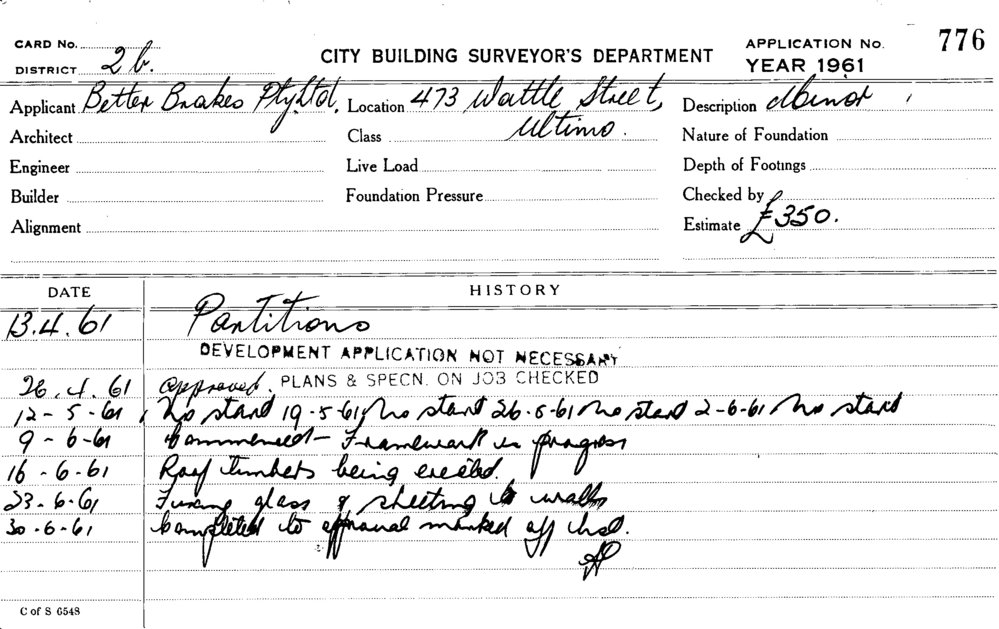 CARD No.
DISTRICT 2b.
CITY BUILDING SURVEYOR'S DEPARTMENT
APPLICATION No. 776
YEAR 1961
Applicant Better Brakes Pty Ltd. Location 473 Wattle Street, Description Minor
Architect Class Ultimo. Nature of Foundation
Engineer Live Load Depth of Footings
Builder Foundation Pressure Checked by
Alignment Estimate £350.
DATE HISTORY
13.4.61 Partitions
DEVELOPMENT APPLICATION NOT NECESSARY
26.4.61 Approved. PLANS & SPECN. ON JOB CHECKED
12-5-61 No start 19-5-61 No start 26-5-61 No start 2-6-61 No start
9-6-61 Commenced - Framework in progress
16-6-61 Roof timbers being erected.
23-6-61 Fixing glass & sheeting to walls
30-6-61 Completed to approval marked off
C of S 6548